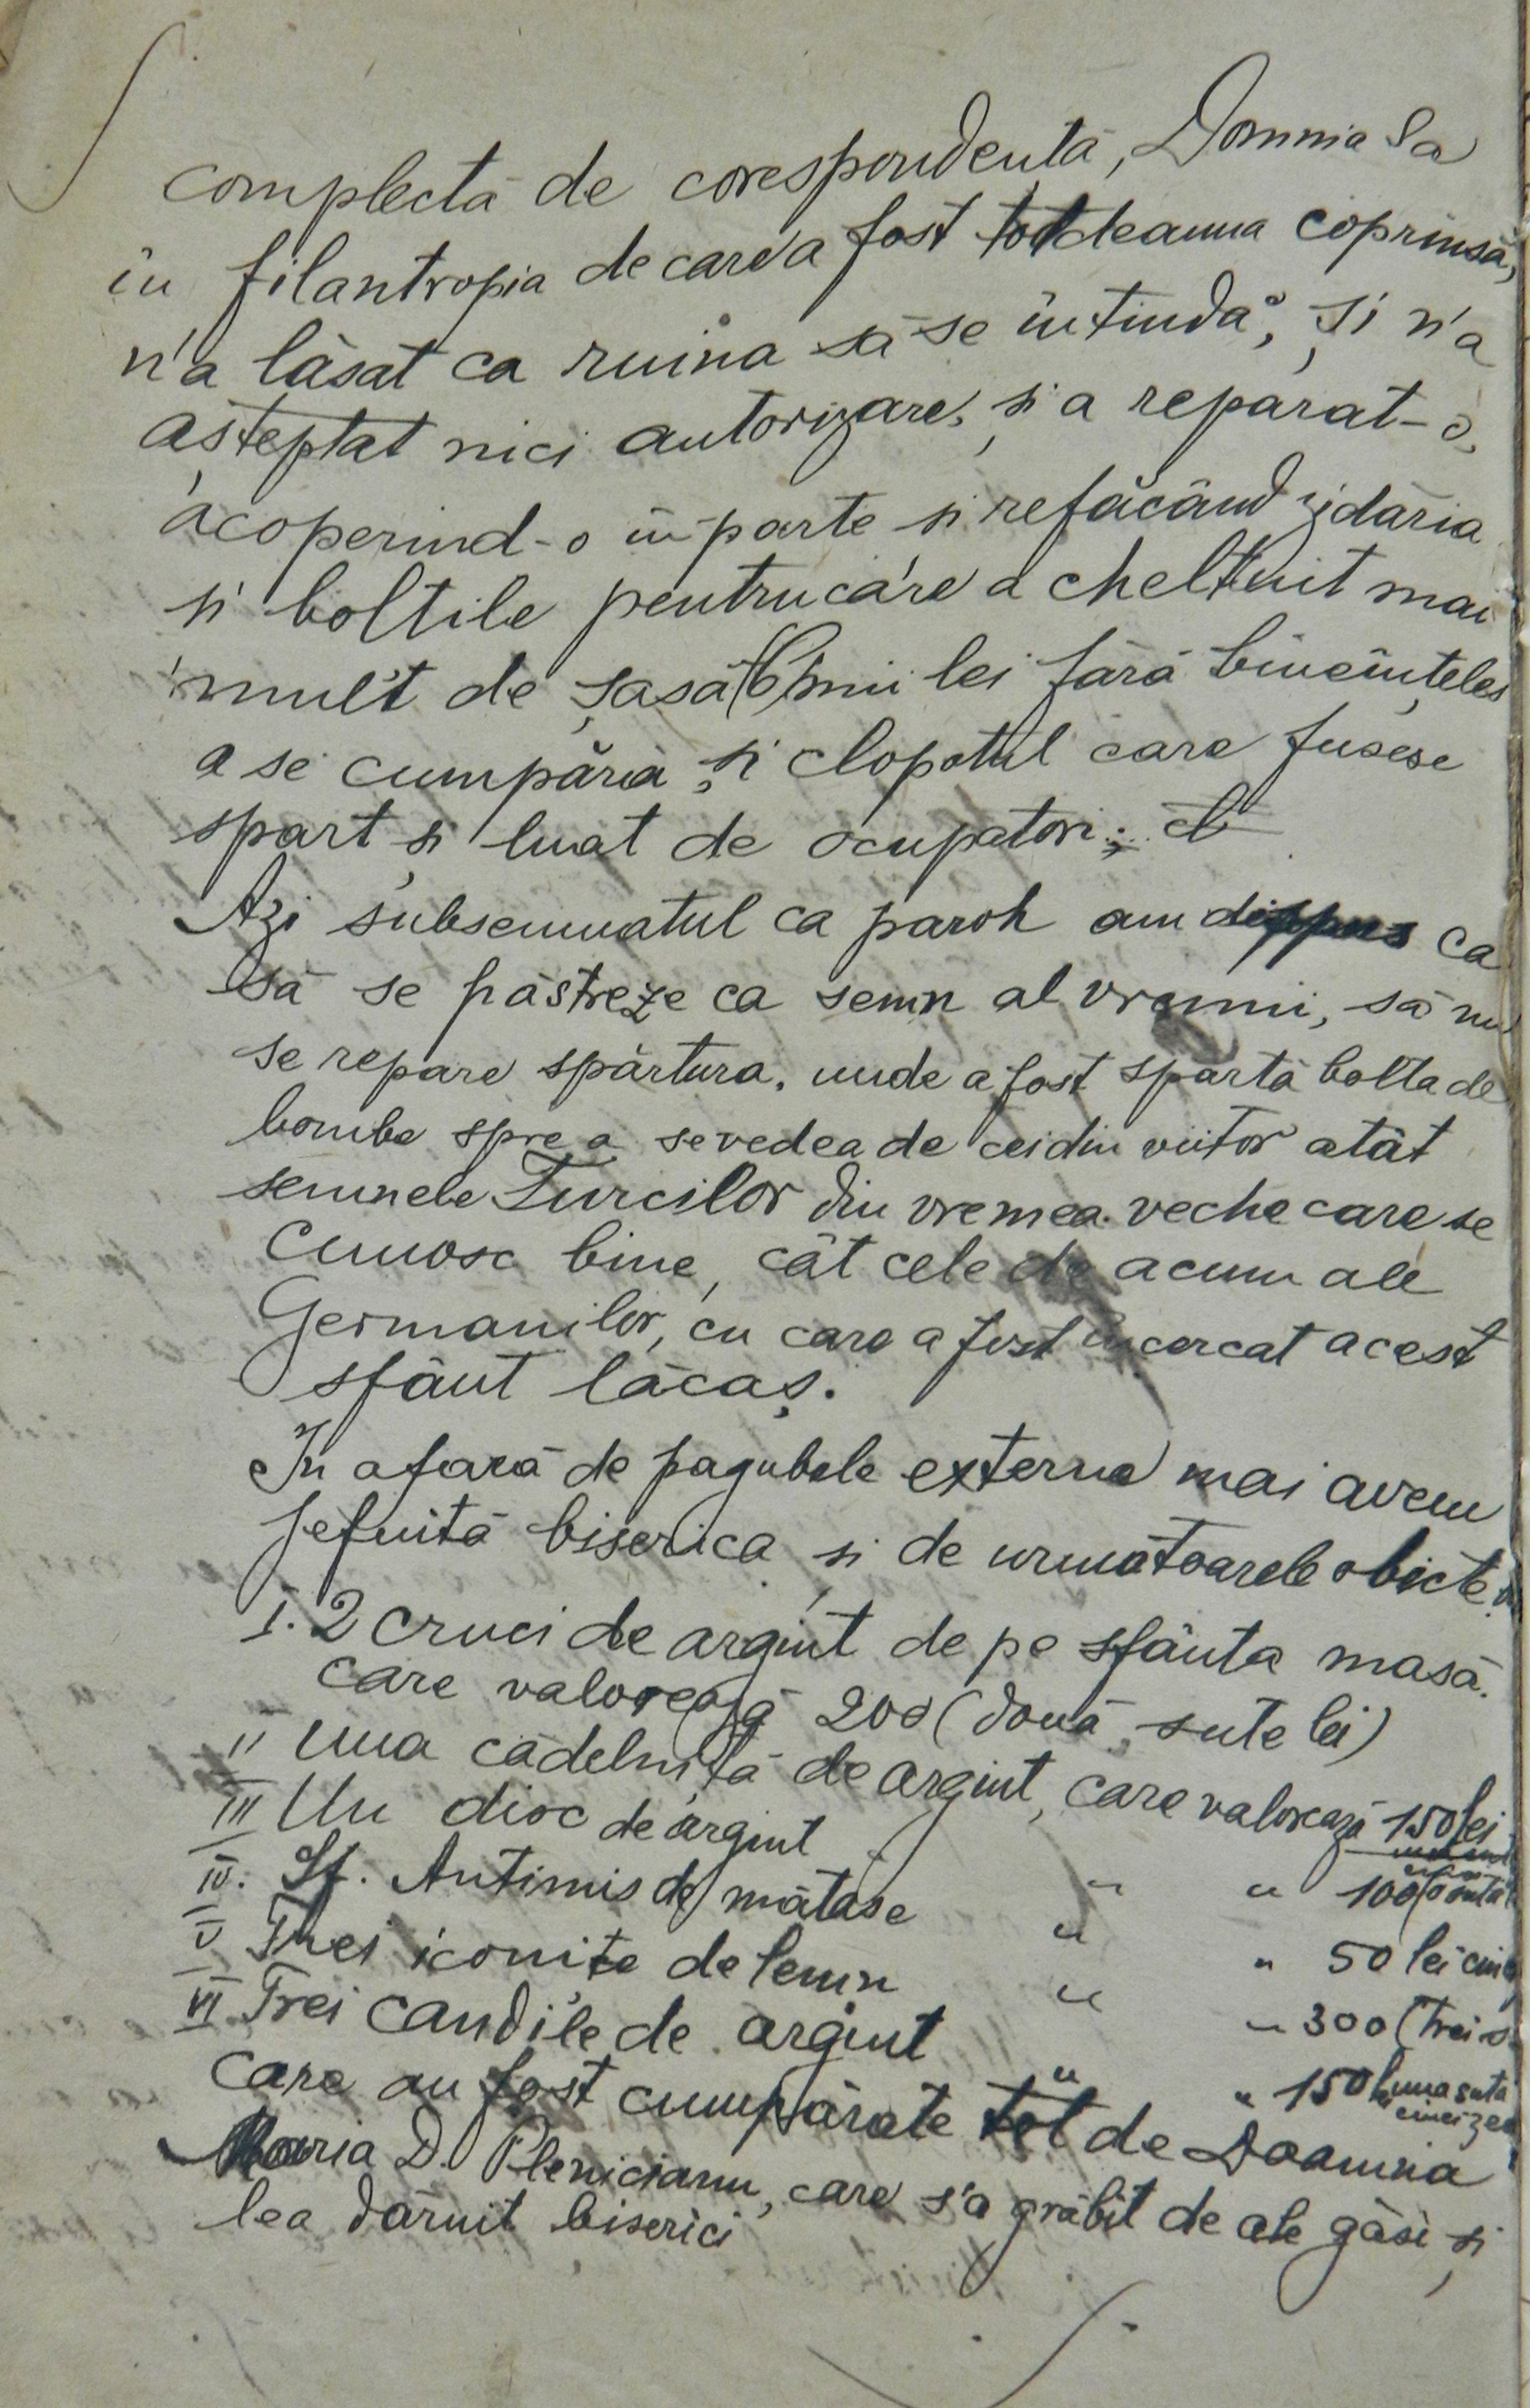 complectă de corespondentă, Domnia Sa
în filantropia de care a fost totdeauna coprinsă,
n'a lăsat ca ruina să se întindă, și n'a
așteptat nici autorizare, și a reparat-o,
acoperind-o în parte si refăcând zidăria
si boltile pentrucare a cheltuit mai
mult de șasă (6) mii lei fără bineînțeles
a se cumpăra și clopotul care fusese
spart și luat de ocupatori.
Azi subsemnatul ca paroh am dispus ca
să se păstreze ca semn al vremii, să nu
se repare spărtura, unde a fost spartă bolta de
bombe spre a se vedea de cei din viitor atât
semnele Turcilor din vremea veche care se
cunosc bine, cât cele de acum ale
Germanilor, cu care a fost încercat acest
sfânt lăcaș.
In afară de pagubele externe mai avem
jefuită biserica și de următoarele obicte:
I. 2 cruci de argint de pe sfânta masă.
care valorează 200 (două sute lei)
II Una cădelniță de argint, care valorează 150 lei
III Un disc de argint " " 100 (o sută
IV. Sf. Antimis de mătase " " 50 lei cinci
V Trei iconițe de lemn " " 300 (trei s
VI Trei candile de argint " " 150 (una sută
cincizeci
care au fost cumpărate tot de Doamna
Maria D. Plenicianu, care s'a grăbit de ale găsi și
lea dăruit biserici